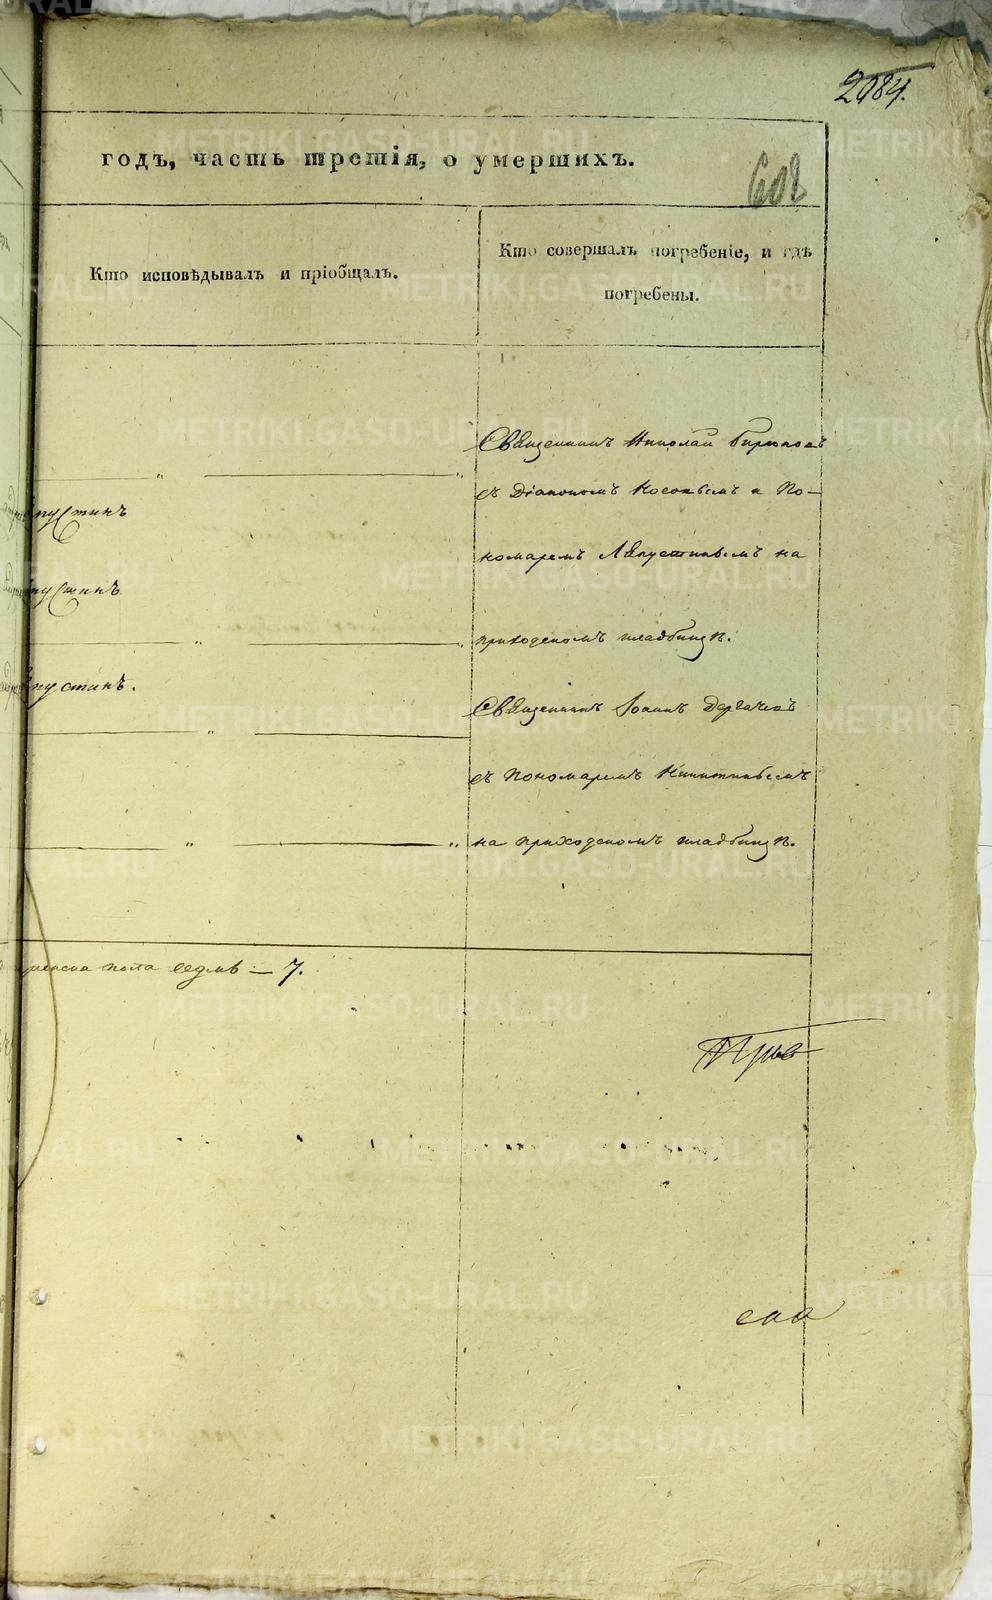 2084.
годъ, часть третія, о умершихъ.
602
Кто исповѣдывалъ и пріобщалъ.
Кто совершалъ погребеніе, и гдѣ
погребены.
Священникъ Николай Бирюковъ
съ Діакономъ Косовымъ и По-
номаремъ Августиновымъ на
приходскомъ кладбищѣ.
Священникъ Іоаннъ Дергачевъ
съ Пономаремъ Никитинымъ
на приходскомъ кладбищѣ.
пола седмь — 7.
METRIKI.GASO-URAL.RU